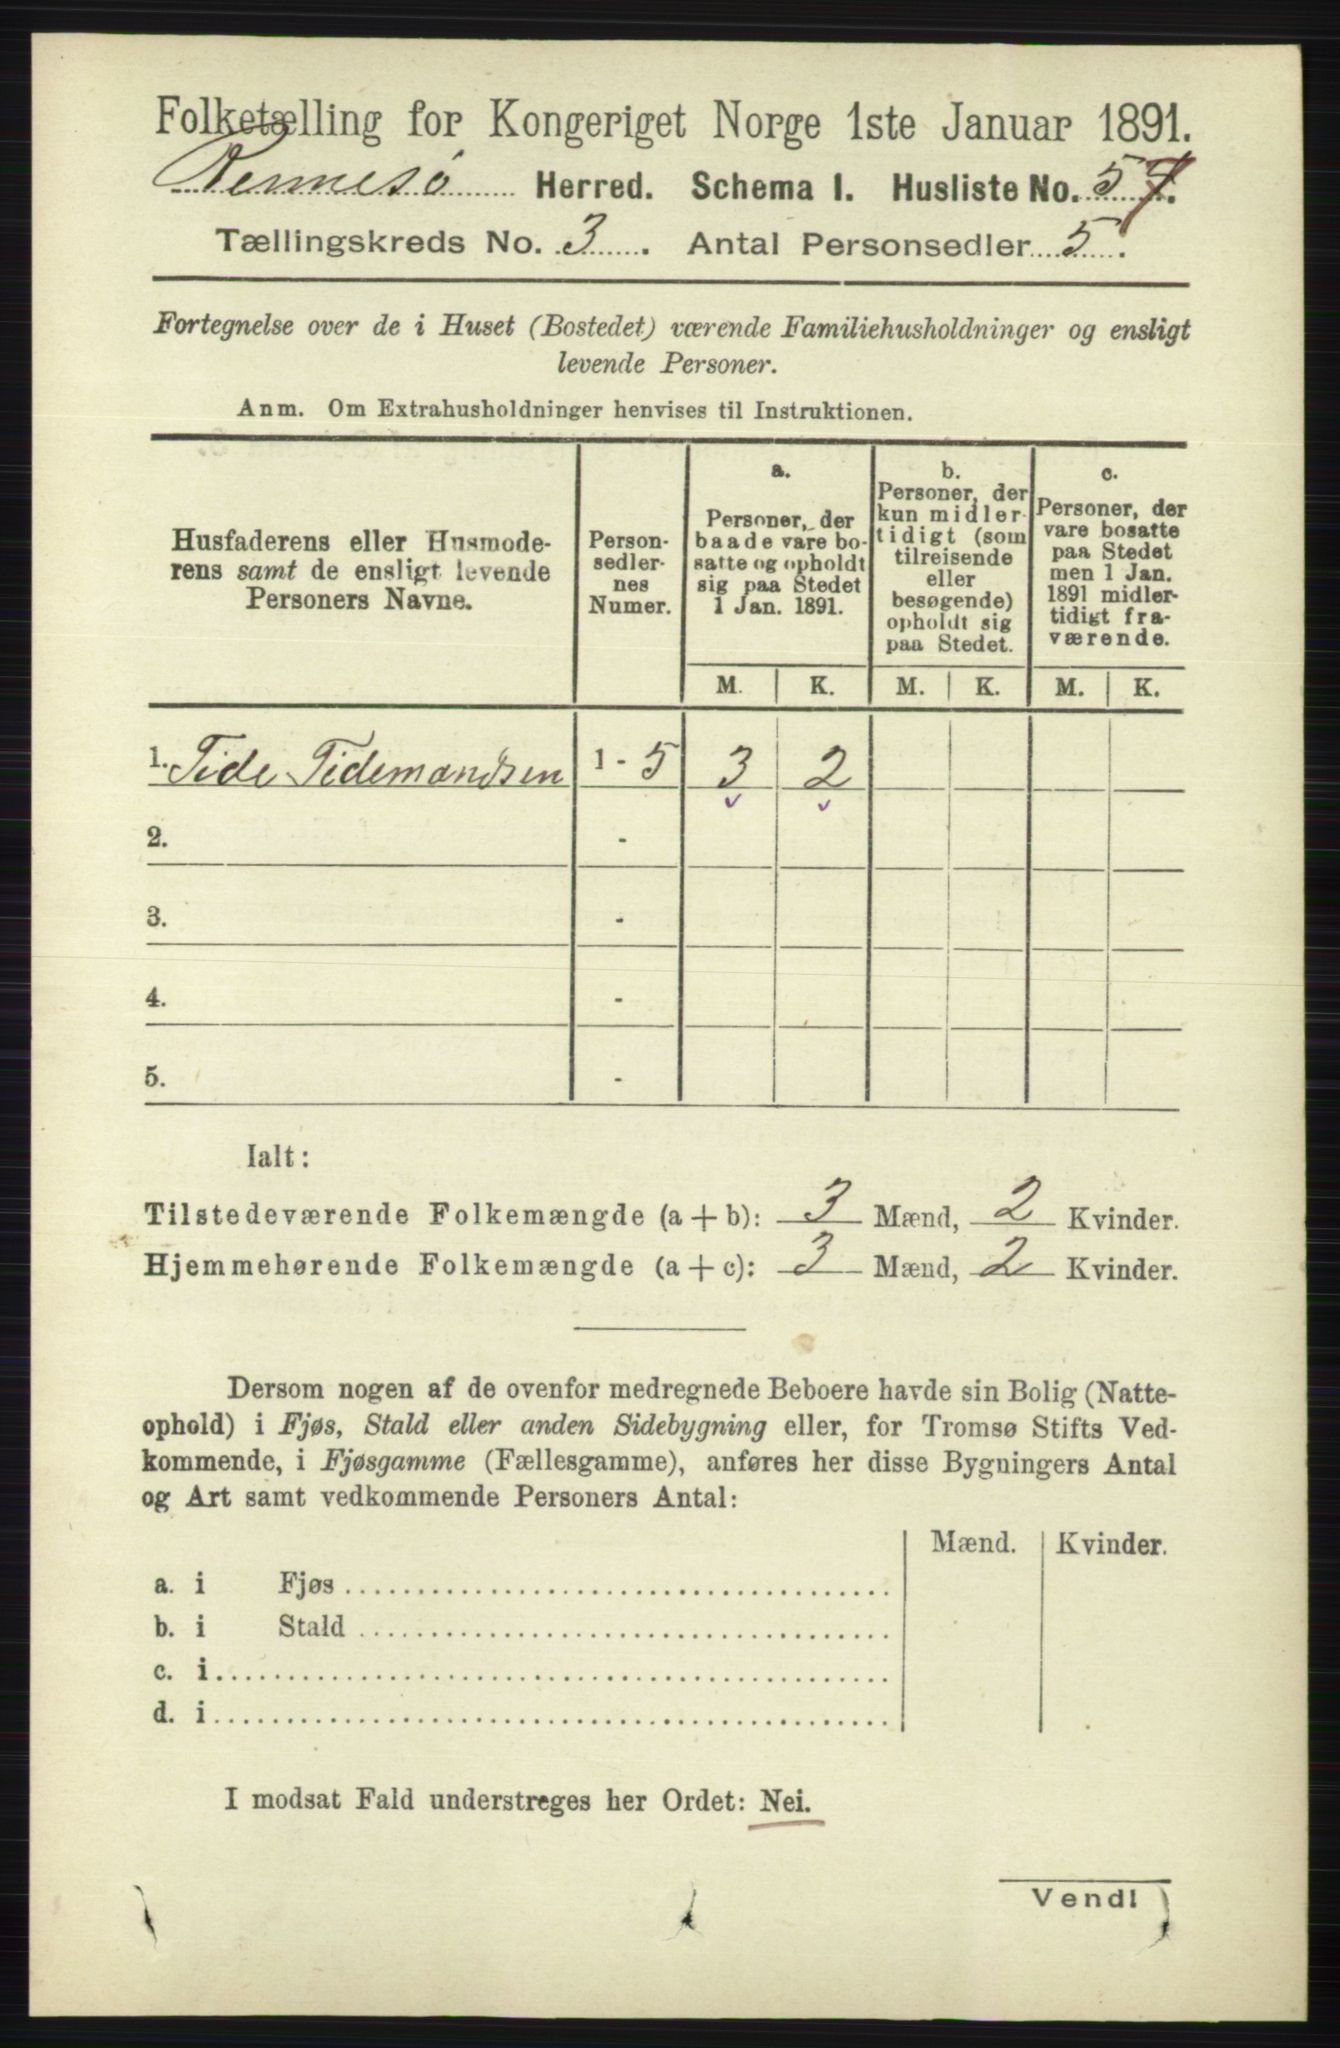 Folketælling for Kongeriget Norge 1ste Januar 1891.
Rennesø Herred. Schema 1. Husliste No. 57.
Tællingskreds No. 3. Antal Personsedler 5.
Fortegnelse over de i Huset (Bostedet) værende Familiehusholdninger og ensligt
levende Personer.
Anm. Om Extrahusholdninger henvises til Instruktionen.
Husfaderens eller Husmode-
rens samt de ensligt levende
Personers Navne.
Person-
sedler-
nes
Numer.
a.
Personer, der
baade vare bo-
satte og opholdt
sig paa Stedet
1 Jan. 1891.
b.
Personer, der
kun midler-
tidigt (som
tilreisende
eller
besøgende)
opholdt sig
paa Stedet.
c.
Personer, der
vare bosatte
paa Stedet
men 1 Jan.
1891 midler-
tidigt fra-
værende.
M. K. M. K. M. K.
1. Tide Tidemandsen 1 - 5 3 2
2. -
3. -
4. -
5. -
Ialt:
Tilstedeværende Folkemængde (a + b): 3 Mænd, 2 Kvinder.
Hjemmehørende Folkemængde (a + c): 3 Mænd, 2 Kvinder.
Dersom nogen af de ovenfor medregnede Beboere havde sin Bolig (Natte-
ophold) i Fjøs, Stald eller anden Sidebygning eller, for Tromsø Stifts Ved-
kommende, i Fjøsgamme (Fællesgamme), anføres her disse Bygningers Antal
og Art samt vedkommende Personers Antal:
Mænd. Kvinder.
a. i Fjøs
b. i Stald
c. i
d. i
I modsat Fald understreges her Ordet: Nei.
Vend!